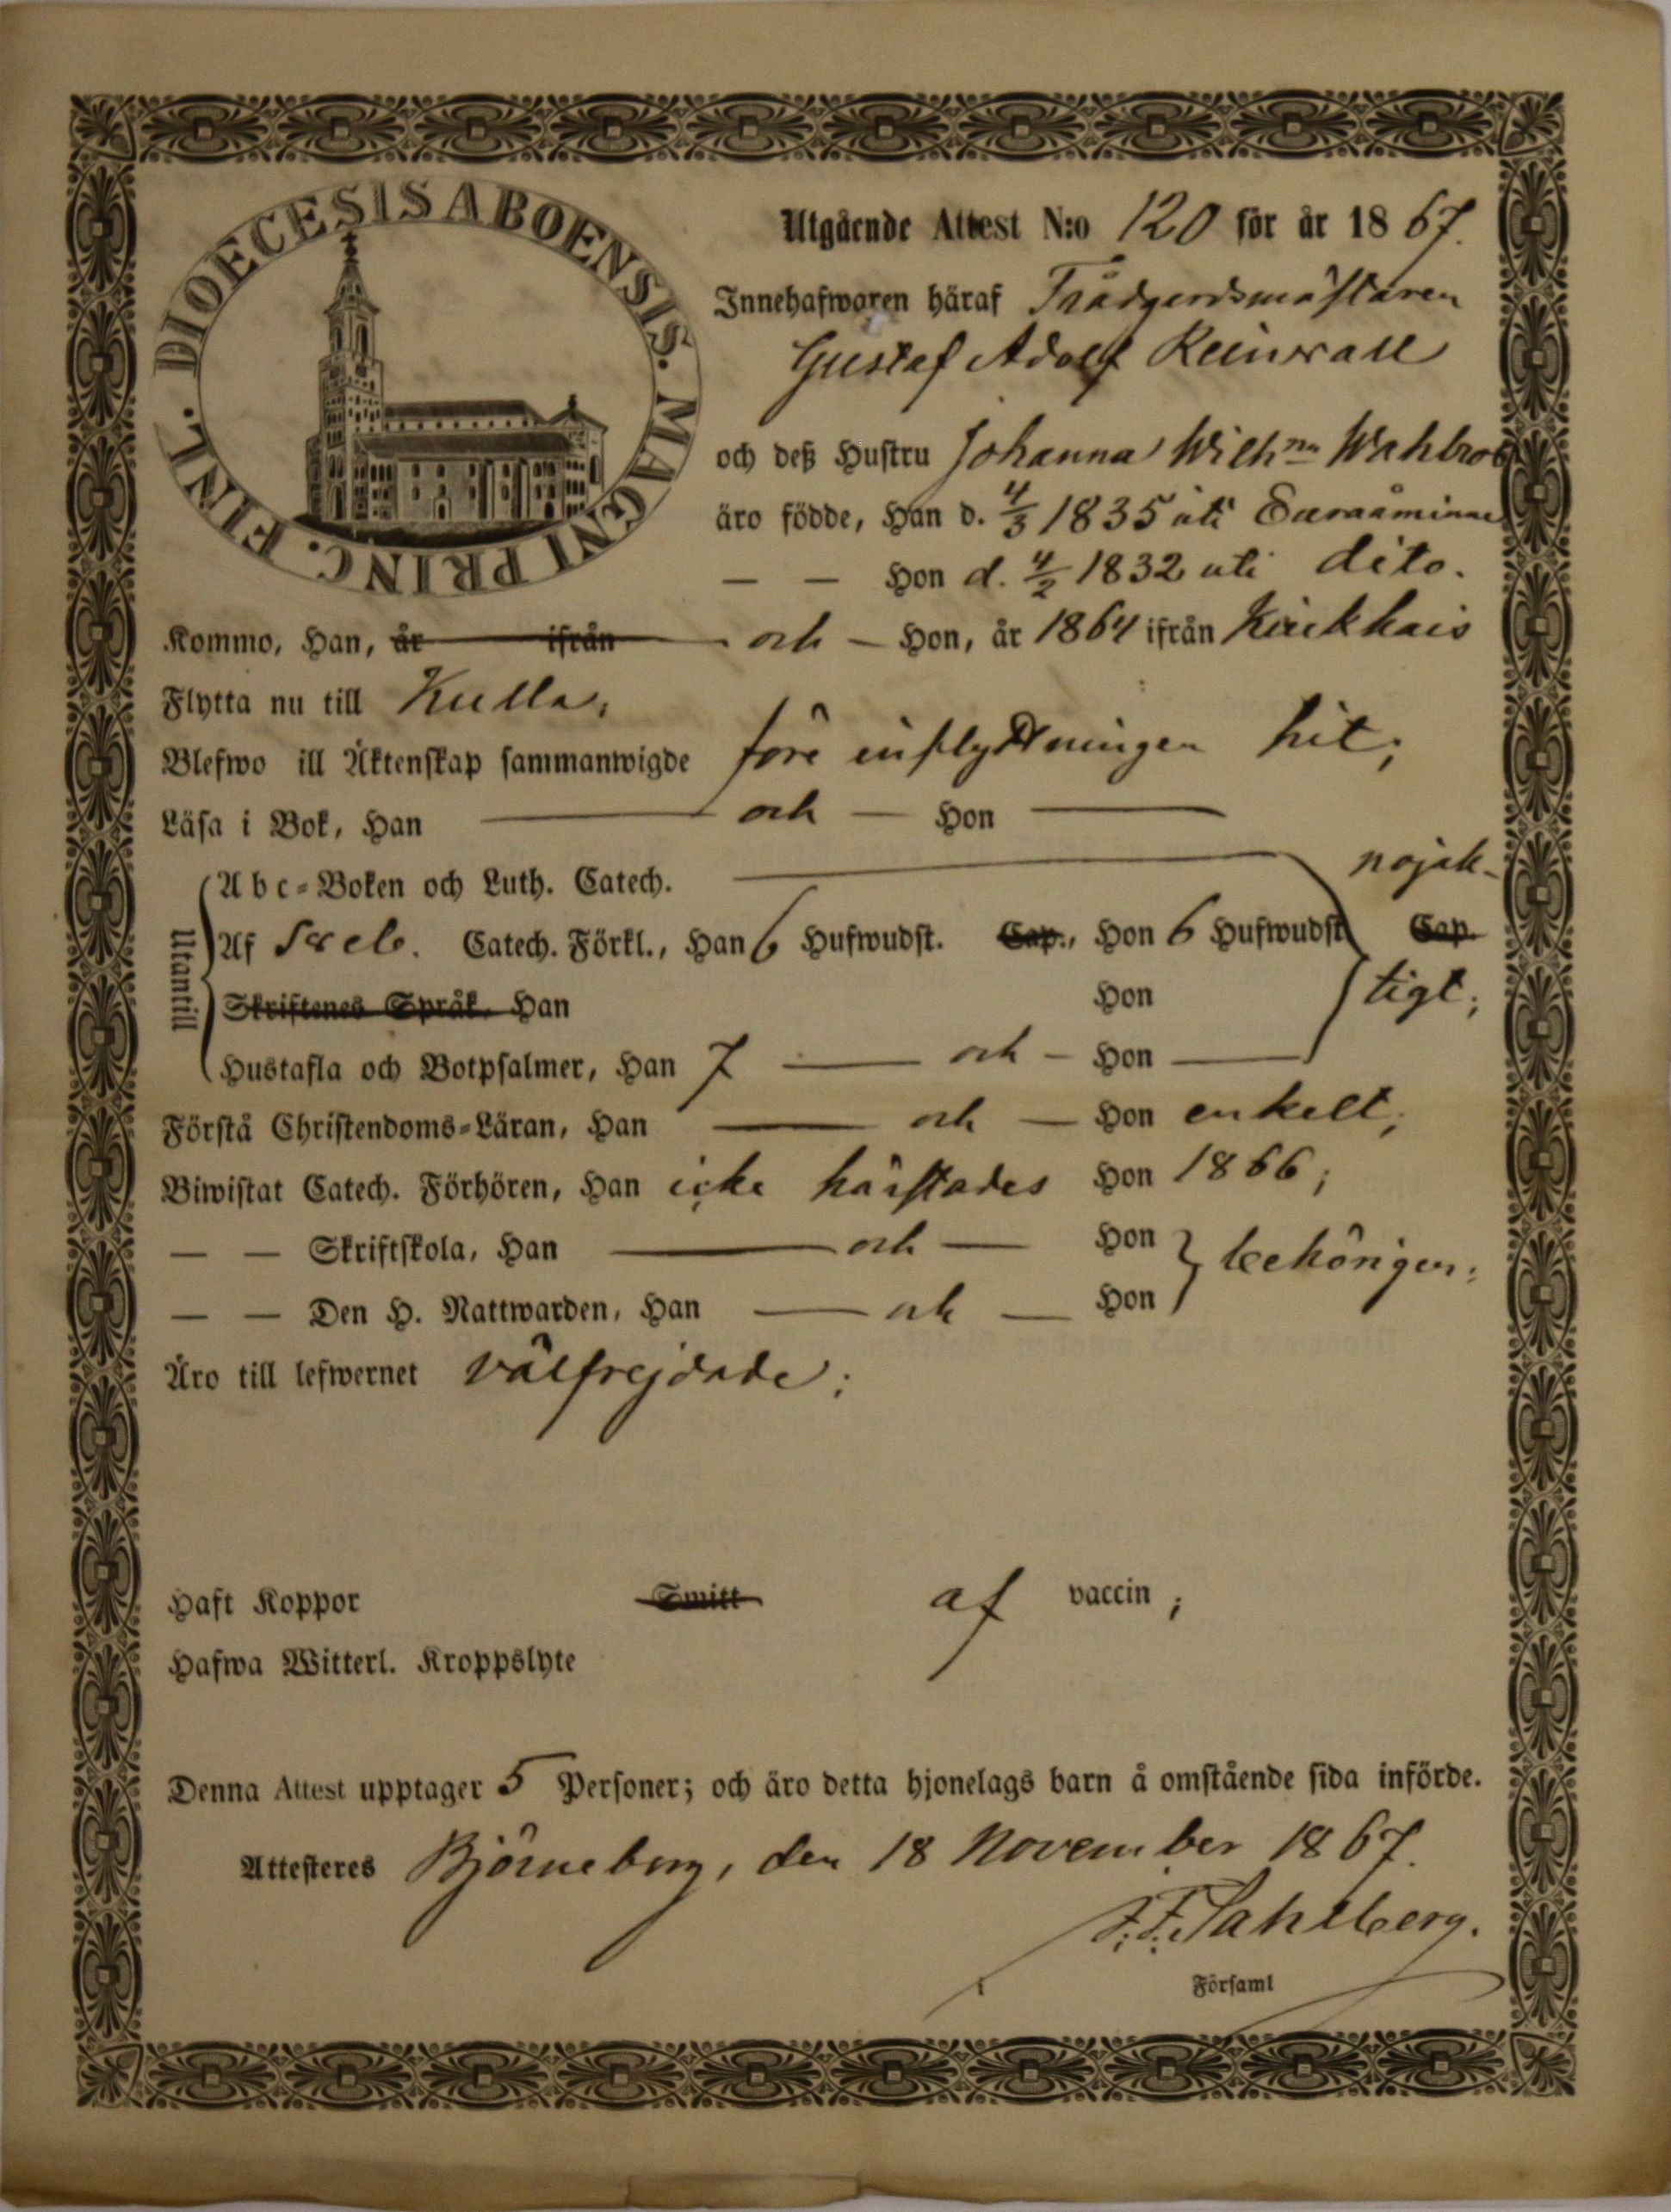 DIOECESIS ABOENSIS. MAGNI PRINC. FINL.
Utgående Attest N:o 120 för år 1867.
Innehafwaren häraf Trädgårdsmästaren
Gustaf Adolf Reinwall
och deß Hustru Johanna Wilhna Wahlroos
äro födde, Han d. 4/3 1835 uti Euraåminne
— — Hon d. 4/2 1832 uti dito.
Kommo, Han, år ifrån och — Hon, år 1864 ifrån
Flytta nu till Kulla;
Blefwo ill Äktenskap sammanwigde före inflyttningen hit;
Läsa i Bok, Han — och — Hon —
Abc-Boken och Luth. Catech. — nöjak-
Utantill
Af Catech. Förkl., Han 6 Hufwudst. Cap., Hon 6 Hufwudst Cap.
Skriftenes Språk, Han Hon tigt;
Hustafla och Botpsalmer, Han 7 — och — Hon —
Förstå Christendoms-Läran, Han — och — Hon enkelt;
Biwistat Catech. Förhören, Han icke härstädes Hon 1866;
— — Skriftskola, Han — och — Hon behörigen;
— — Den H. Nattwarden, Han — och — Hon
Äro till lefwernet välfrejdade;
Haft Koppor Smitt af vaccin;
Hafwa Witterl. Kroppslyte
Denna Attest upptager 5 Personer; och äro detta hjonelags barn å omstående sida införde.
Attesteres Björneborg, den 18 November 1867.
F. F. Sahlberg.
Församl